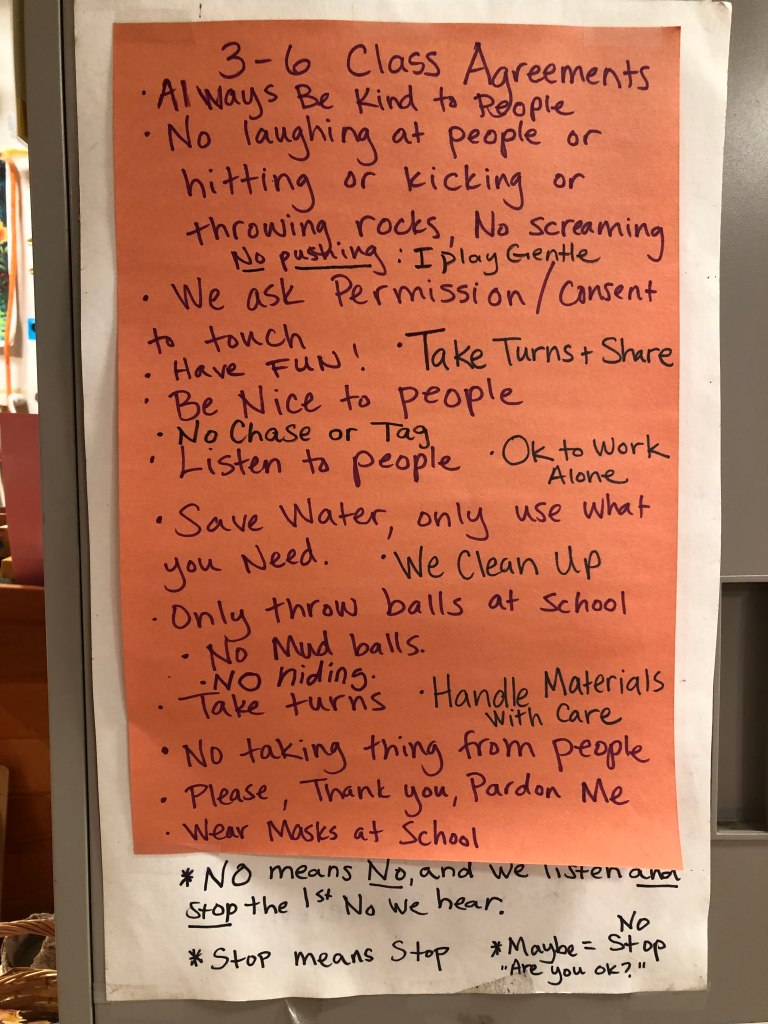 3-6 Class Agreements
· Always Be Kind to People
· No laughing at people or
hitting or kicking or
throwing rocks, No screaming
No pushing : I play Gentle
· We ask Permission/Consent
to touch
· Have FUN! · Take Turns + Share
· Be Nice to people
· No Chase or Tag
· Listen to people · Ok to Work
Alone
· Save Water, only use what
you Need. · We Clean Up
· Only throw balls at School
· No Mud balls.
· NO hiding.
· Take turns · Handle Materials
With Care
· No taking thing from people
· Please, Thank you, Pardon Me
· Wear Masks at School
* NO means No, and we listen and
stop the 1st No we hear.
* Stop means Stop * Maybe = No Stop
"Are you ok?"